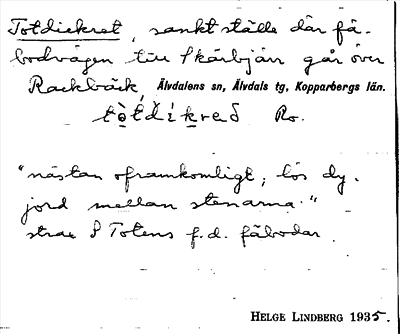 Totdiekret, sankt ställe där fä-
bodvägen till Skärbjän går över
Rackbäck, Älvdalens sn, Älvdals tg, Kopparbergs län.
tòtdíkred Ro.
"nästan oframkomligt, lös dy-
jord mellan stenarna."
strax S Totens f.d. fäbodar
HELGE LINDBERG 1935.